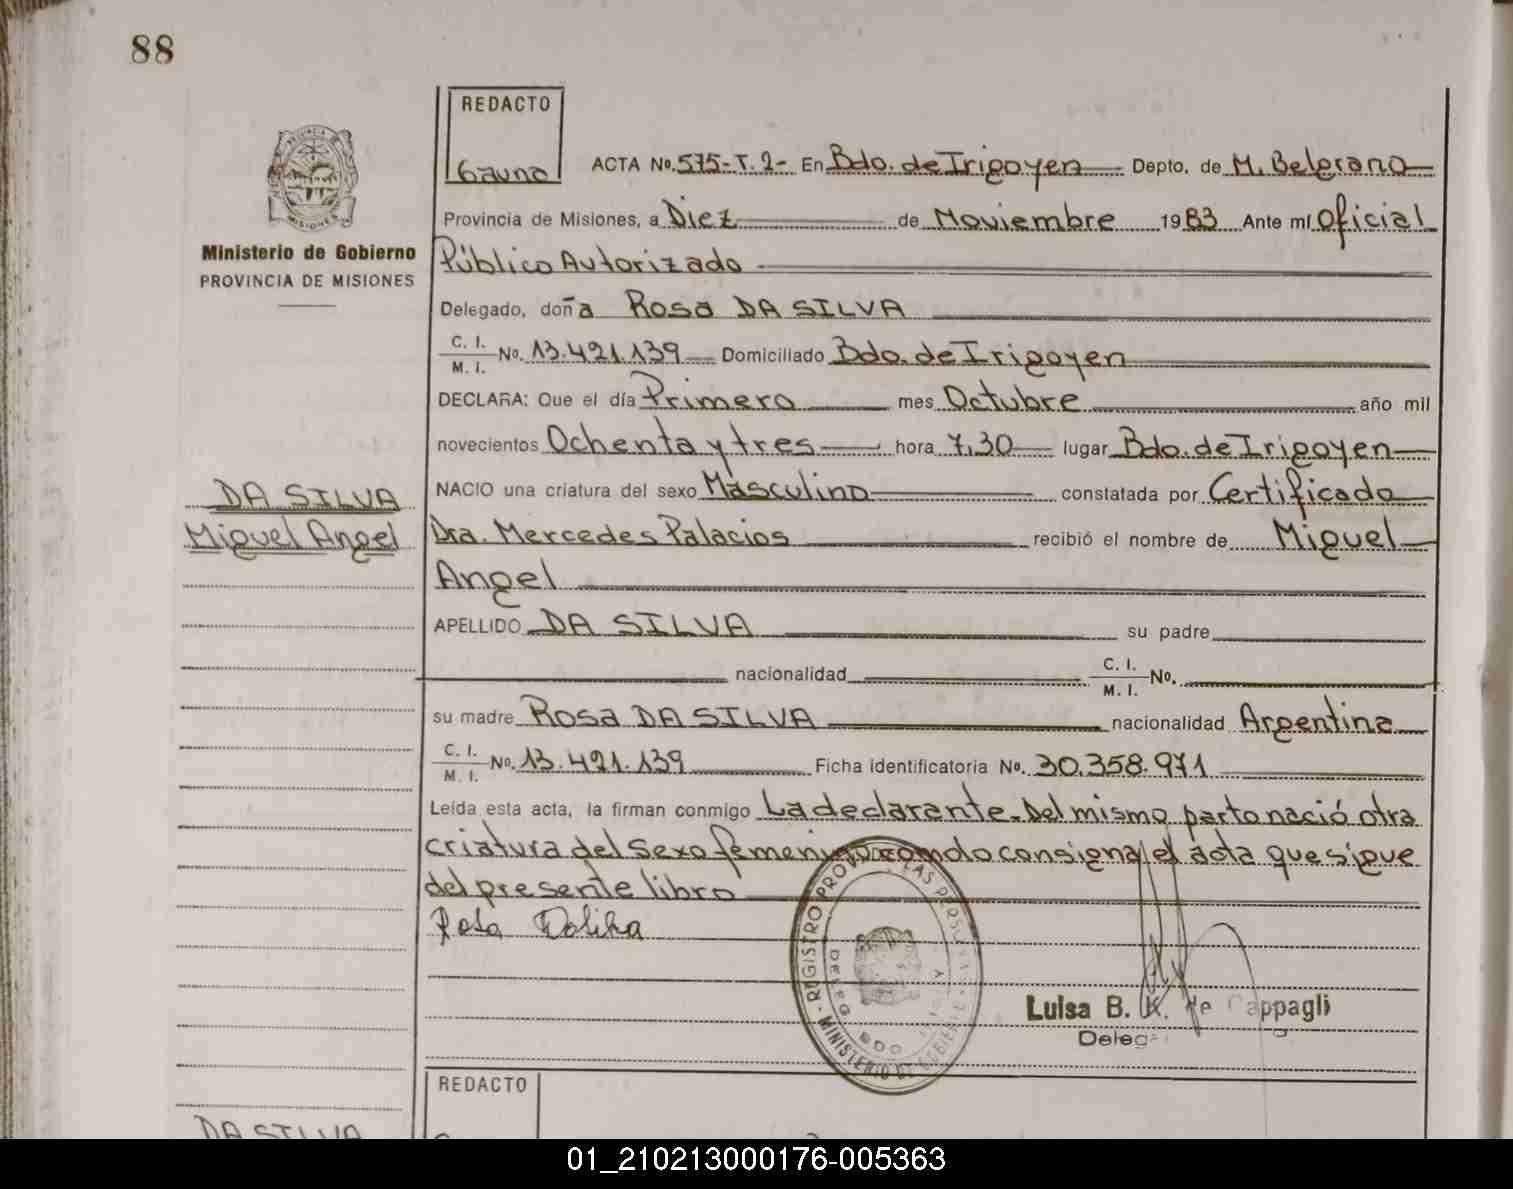 88
REDACTO
Gauna
ACTA No. 575-T.2- En Bdo. de Irigoyen Depto. de M. Belgrano
Provincia de Misiones, a Diez de Noviembre 1983 Ante mí Oficial
Público Autorizado
Ministerio de Gobierno
PROVINCIA DE MISIONES
Delegado, doña Rosa DA SILVA
C. I.
M. I. No. 13.421.139 Domiciliado Bdo. de Irigoyen
DECLARA: Que el día Primero mes Octubre año mil
novecientos Ochenta y tres hora 7,30 lugar Bdo. de Irigoyen
DA SILVA
Miguel Angel
NACIO una criatura del sexo Masculino constatada por Certificado
Dra. Mercedes Palacios recibió el nombre de Miguel
Angel
APELLIDO DA SILVA su padre
nacionalidad C. I. M. I. No.
su madre Rosa DA SILVA nacionalidad Argentina
C. I.
M. I. No. 13.421.139 Ficha identificatoria No. 30.358.971
Leída esta acta, la firman conmigo La declarante. Del mismo parto nació otra
criatura del sexo femenino como lo consigna el acta que sigue
del presente libro
Rosa
REGISTRO PROV. LAS PERSONAS
MINISTERIO DE GOBIERNO
DELEG BDO
Luisa B. K. de Cappagli
Deleg
REDACTO
DA SILVA
01_210213000176-005363